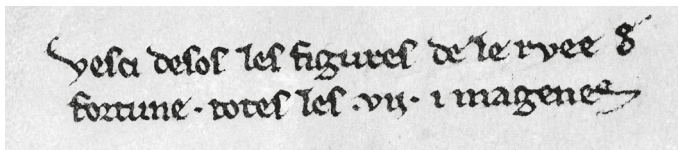 vesci desos les figures de le rvee d
fortune · totes les ·vij· imagenes